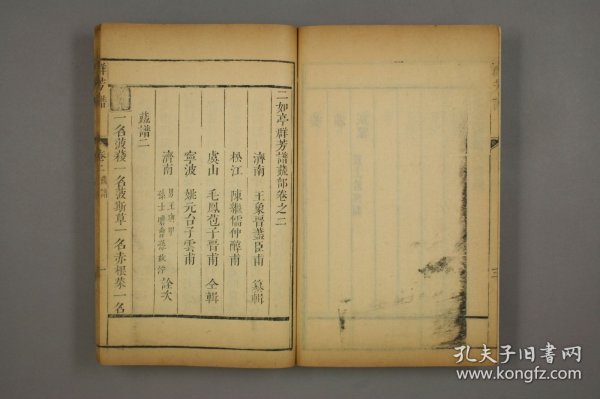 二如亭群芳譜蔬部卷之二
濟南 王象晉藎臣甫 纂輯
松江 陳繼儒仲醇甫
虞山 毛鳳苞子晉甫 全輯
寧波 姚元台子雲甫
濟南 詮次
蔬譜二
一名菠薐一名菠斯草一名赤根菜一名
群芳譜
孔夫子旧书网
www.kongfz.com